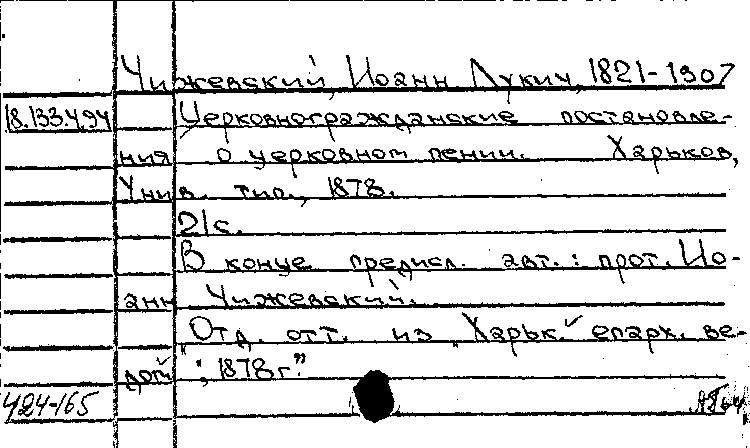 Чижевский, Иоанн Лукич, 1821-1907
18.133.4.94 Церковногражданские постановле-
ния о церковном пении. Харьков,
Унив. тип., 1878.
21с.
В конце предисл. авт.: прот. Ио-
анн Чижевский.
„Отд. отт. из „Харьк. епарх. ве-
дом.“, 1878г.”
424-165